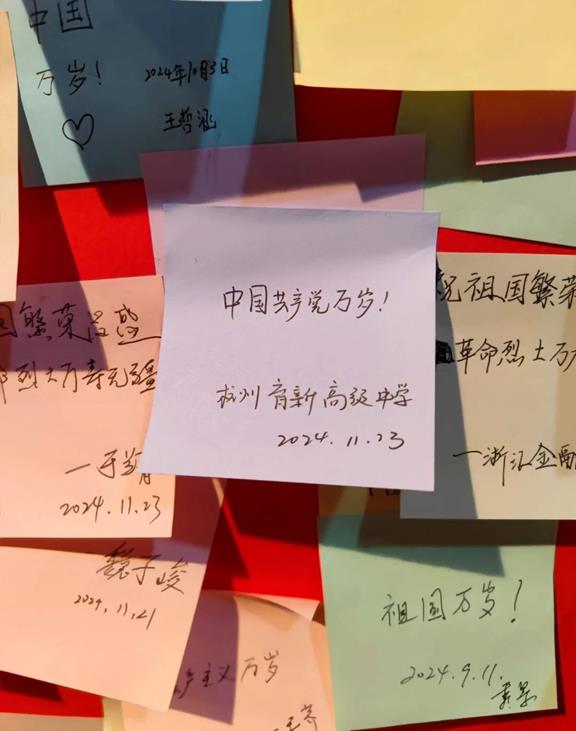 中国
万岁!
2024年10月3日
王哲涵
中国共产党万岁!
杭州育新高级中学
2024.11.23
国繁荣昌盛
烈士万寿无疆
2024.11.23
祝祖国繁荣
革命烈士万
—浙江金融
魏子峻
2024.11.21
主义万岁
祖国万岁!
2024.9.11.